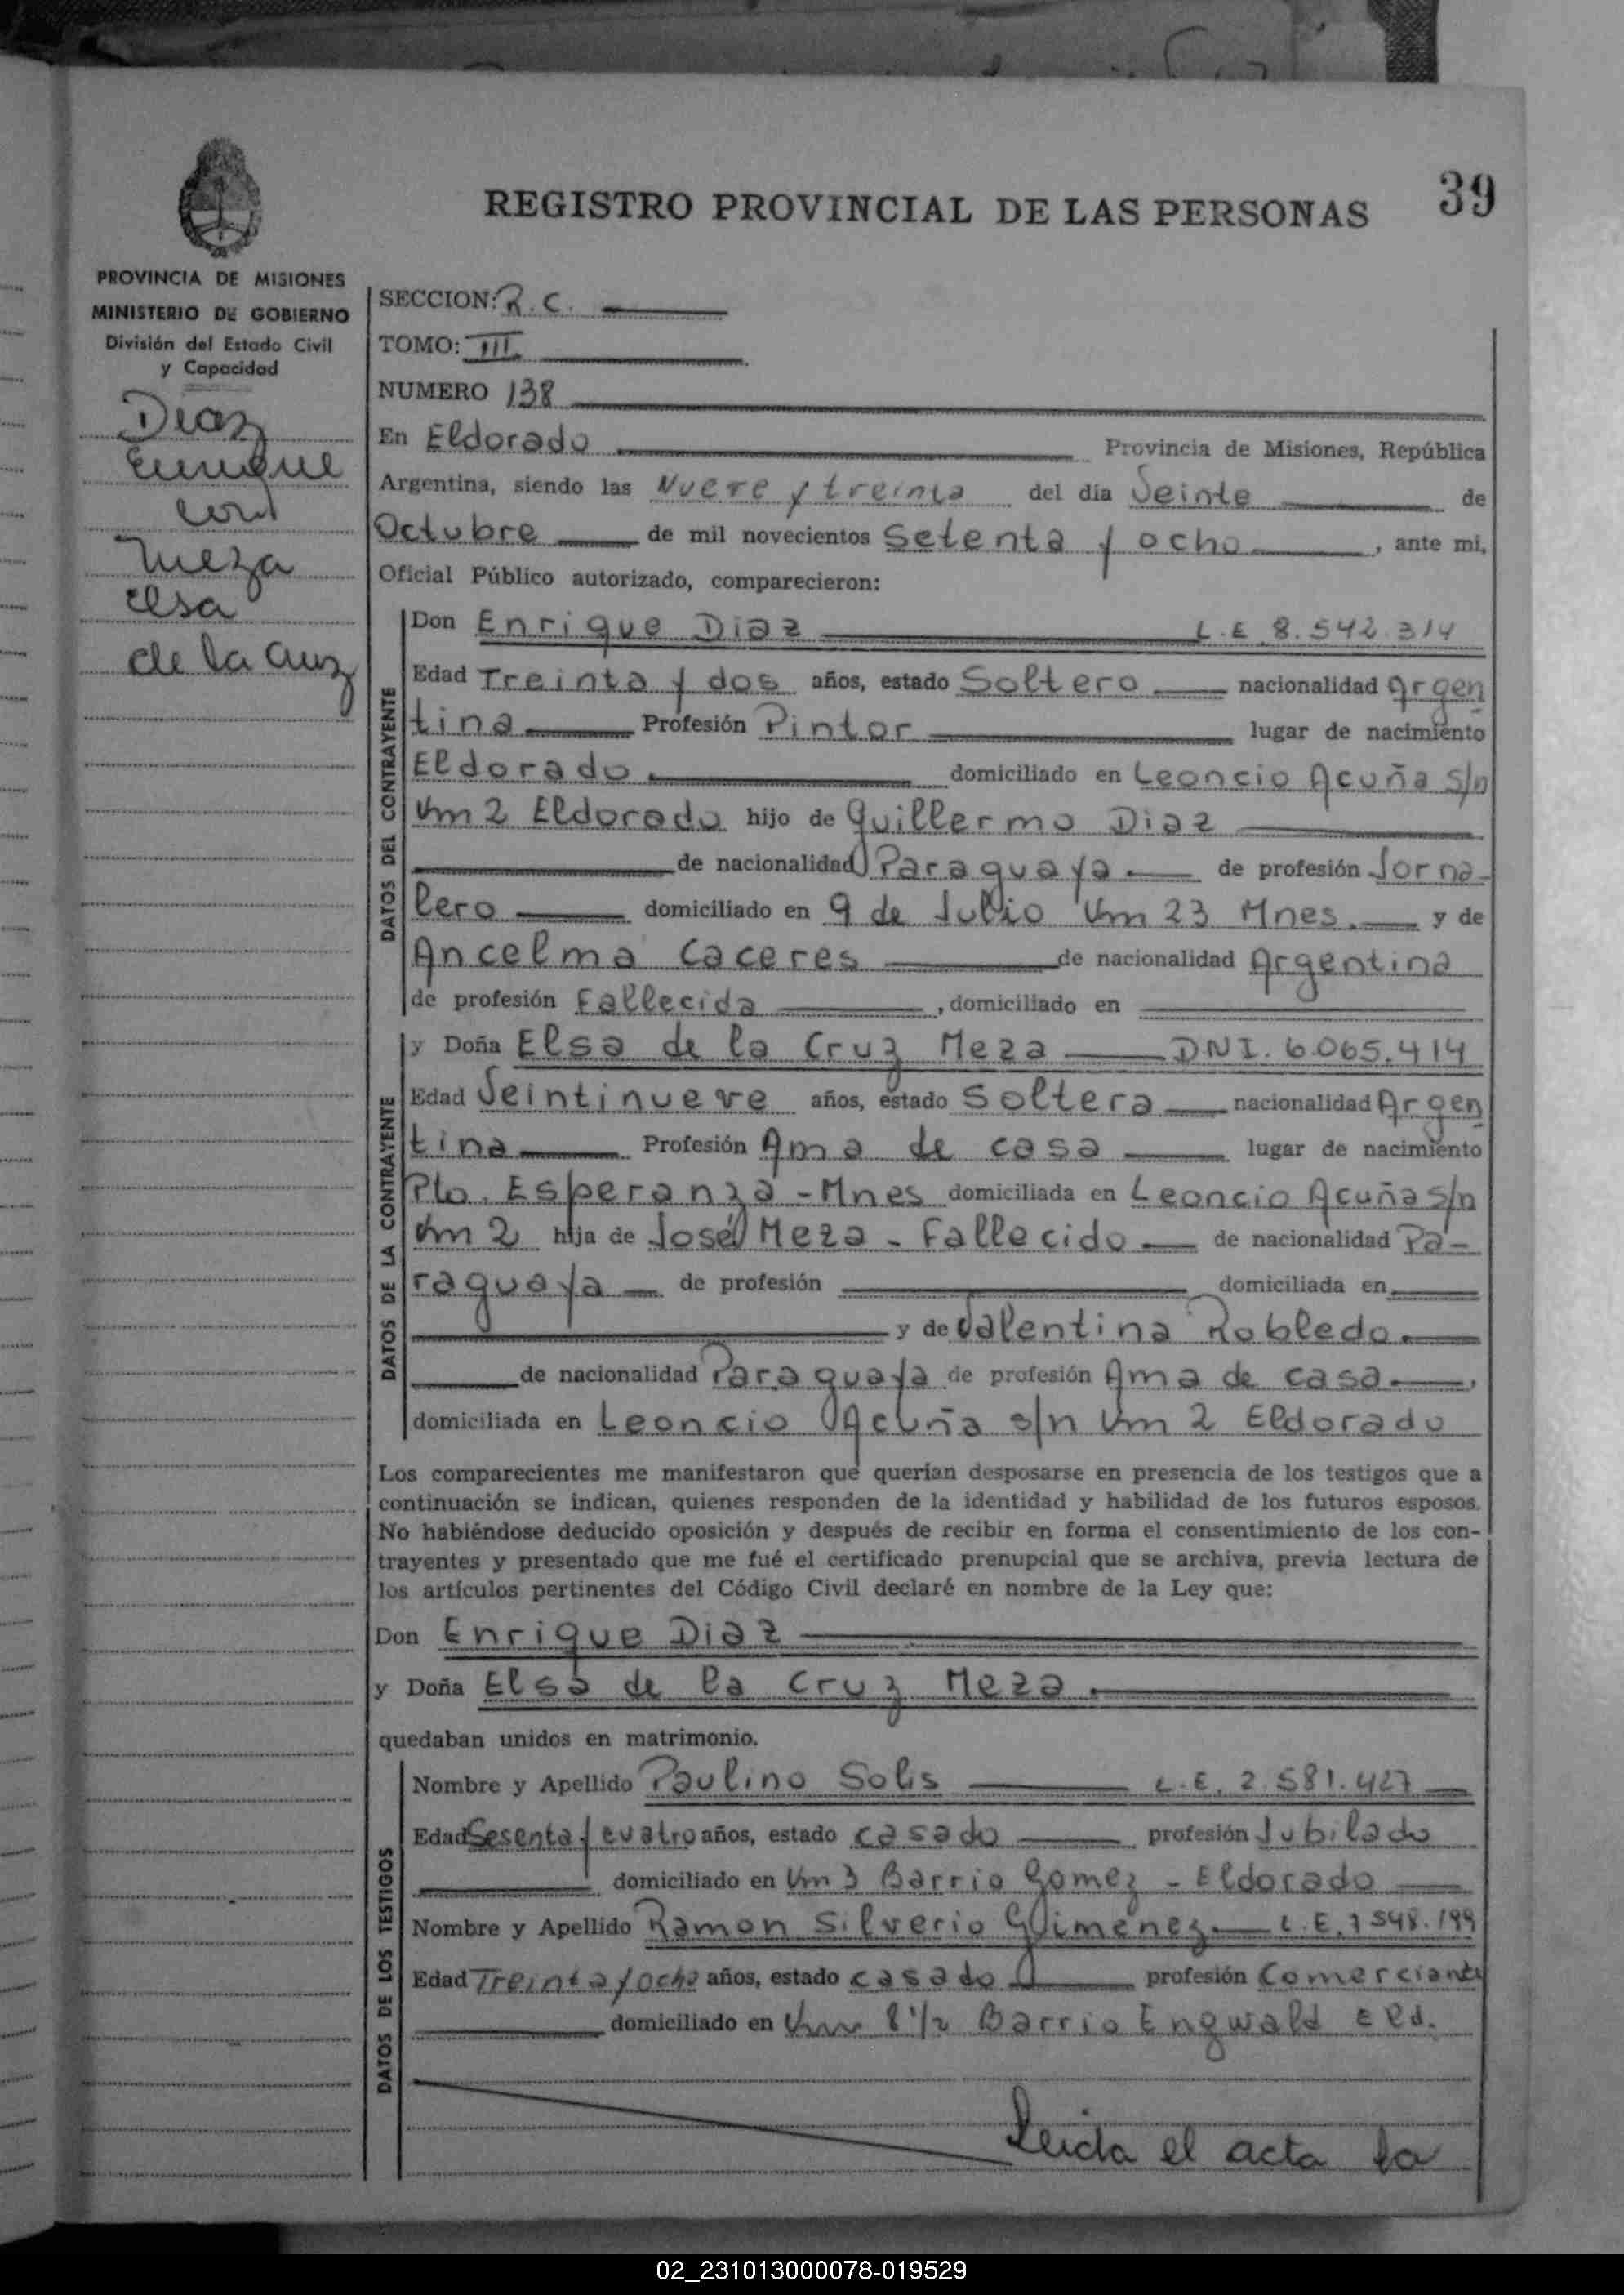 39
REGISTRO PROVINCIAL DE LAS PERSONAS
PROVINCIA DE MISIONES
MINISTERIO DE GOBIERNO
División del Estado Civil
y Capacidad
Diaz
Enrique
con
Meza
Elsa
de la Cruz
SECCION: R. C.
TOMO: III.
NUMERO 138
En Eldorado Provincia de Misiones, República
Argentina, siendo las Nueve y treinta del día Veinte de
Octubre de mil novecientos Setenta y ocho, ante mi,
Oficial Público autorizado, comparecieron:
DATOS DEL CONTRAYENTE
Don Enrique Diaz L.E 8.542.314
Edad Treinta y dos años, estado Soltero nacionalidad Argen
tina Profesión Pintor lugar de nacimiento
Eldorado domiciliado en Leoncio Acuña s/n
Km 2 Eldorado hijo de Guillermo Diaz
de nacionalidad Paraguaya de profesión Jorna-
lero domiciliado en 9 de Julio Km 23 Mnes. y de
Ancelma Caceres de nacionalidad Argentina
de profesión Fallecida, domiciliado en
DATOS DE LA CONTRAYENTE
y Doña Elsa de la Cruz Meza DNI. 6.065.414
Edad Veintinueve años, estado Soltera nacionalidad Argen
tina Profesión Ama de casa lugar de nacimiento
Pto. Esperanza - Mnes domiciliada en Leoncio Acuña s/n
Km 2 hija de José Meza - Fallecido de nacionalidad Pa-
raguaya de profesión domiciliada en
y de Valentina Robledo.
de nacionalidad Paraguaya de profesión Ama de casa,
domiciliada en Leoncio Acuña s/n Km 2 Eldorado
Los comparecientes me manifestaron que querían desposarse en presencia de los testigos que a
continuación se indican, quienes responden de la identidad y habilidad de los futuros esposos.
No habiéndose deducido oposición y después de recibir en forma el consentimiento de los con-
trayentes y presentado que me fué el certificado prenupcial que se archiva, previa lectura de
los artículos pertinentes del Código Civil declaré en nombre de la Ley que:
Don Enrique Diaz
y Doña Elsa de la Cruz Meza.
quedaban unidos en matrimonio.
DATOS DE LOS TESTIGOS
Nombre y Apellido Paulino Solis L.E. 2.581.427
Edad Sesenta y cuatro años, estado casado profesión Jubilado
domiciliado en Km 3 Barrio Gomez - Eldorado
Nombre y Apellido Ramon Silverio Gimenez L.E. 7 548.199
Edad Treinta y ocho años, estado casado profesión Comerciante
domiciliado en Km 8 1/2 Barrio Engwald Eld.
Leida el acta la
02_231013000078-019529